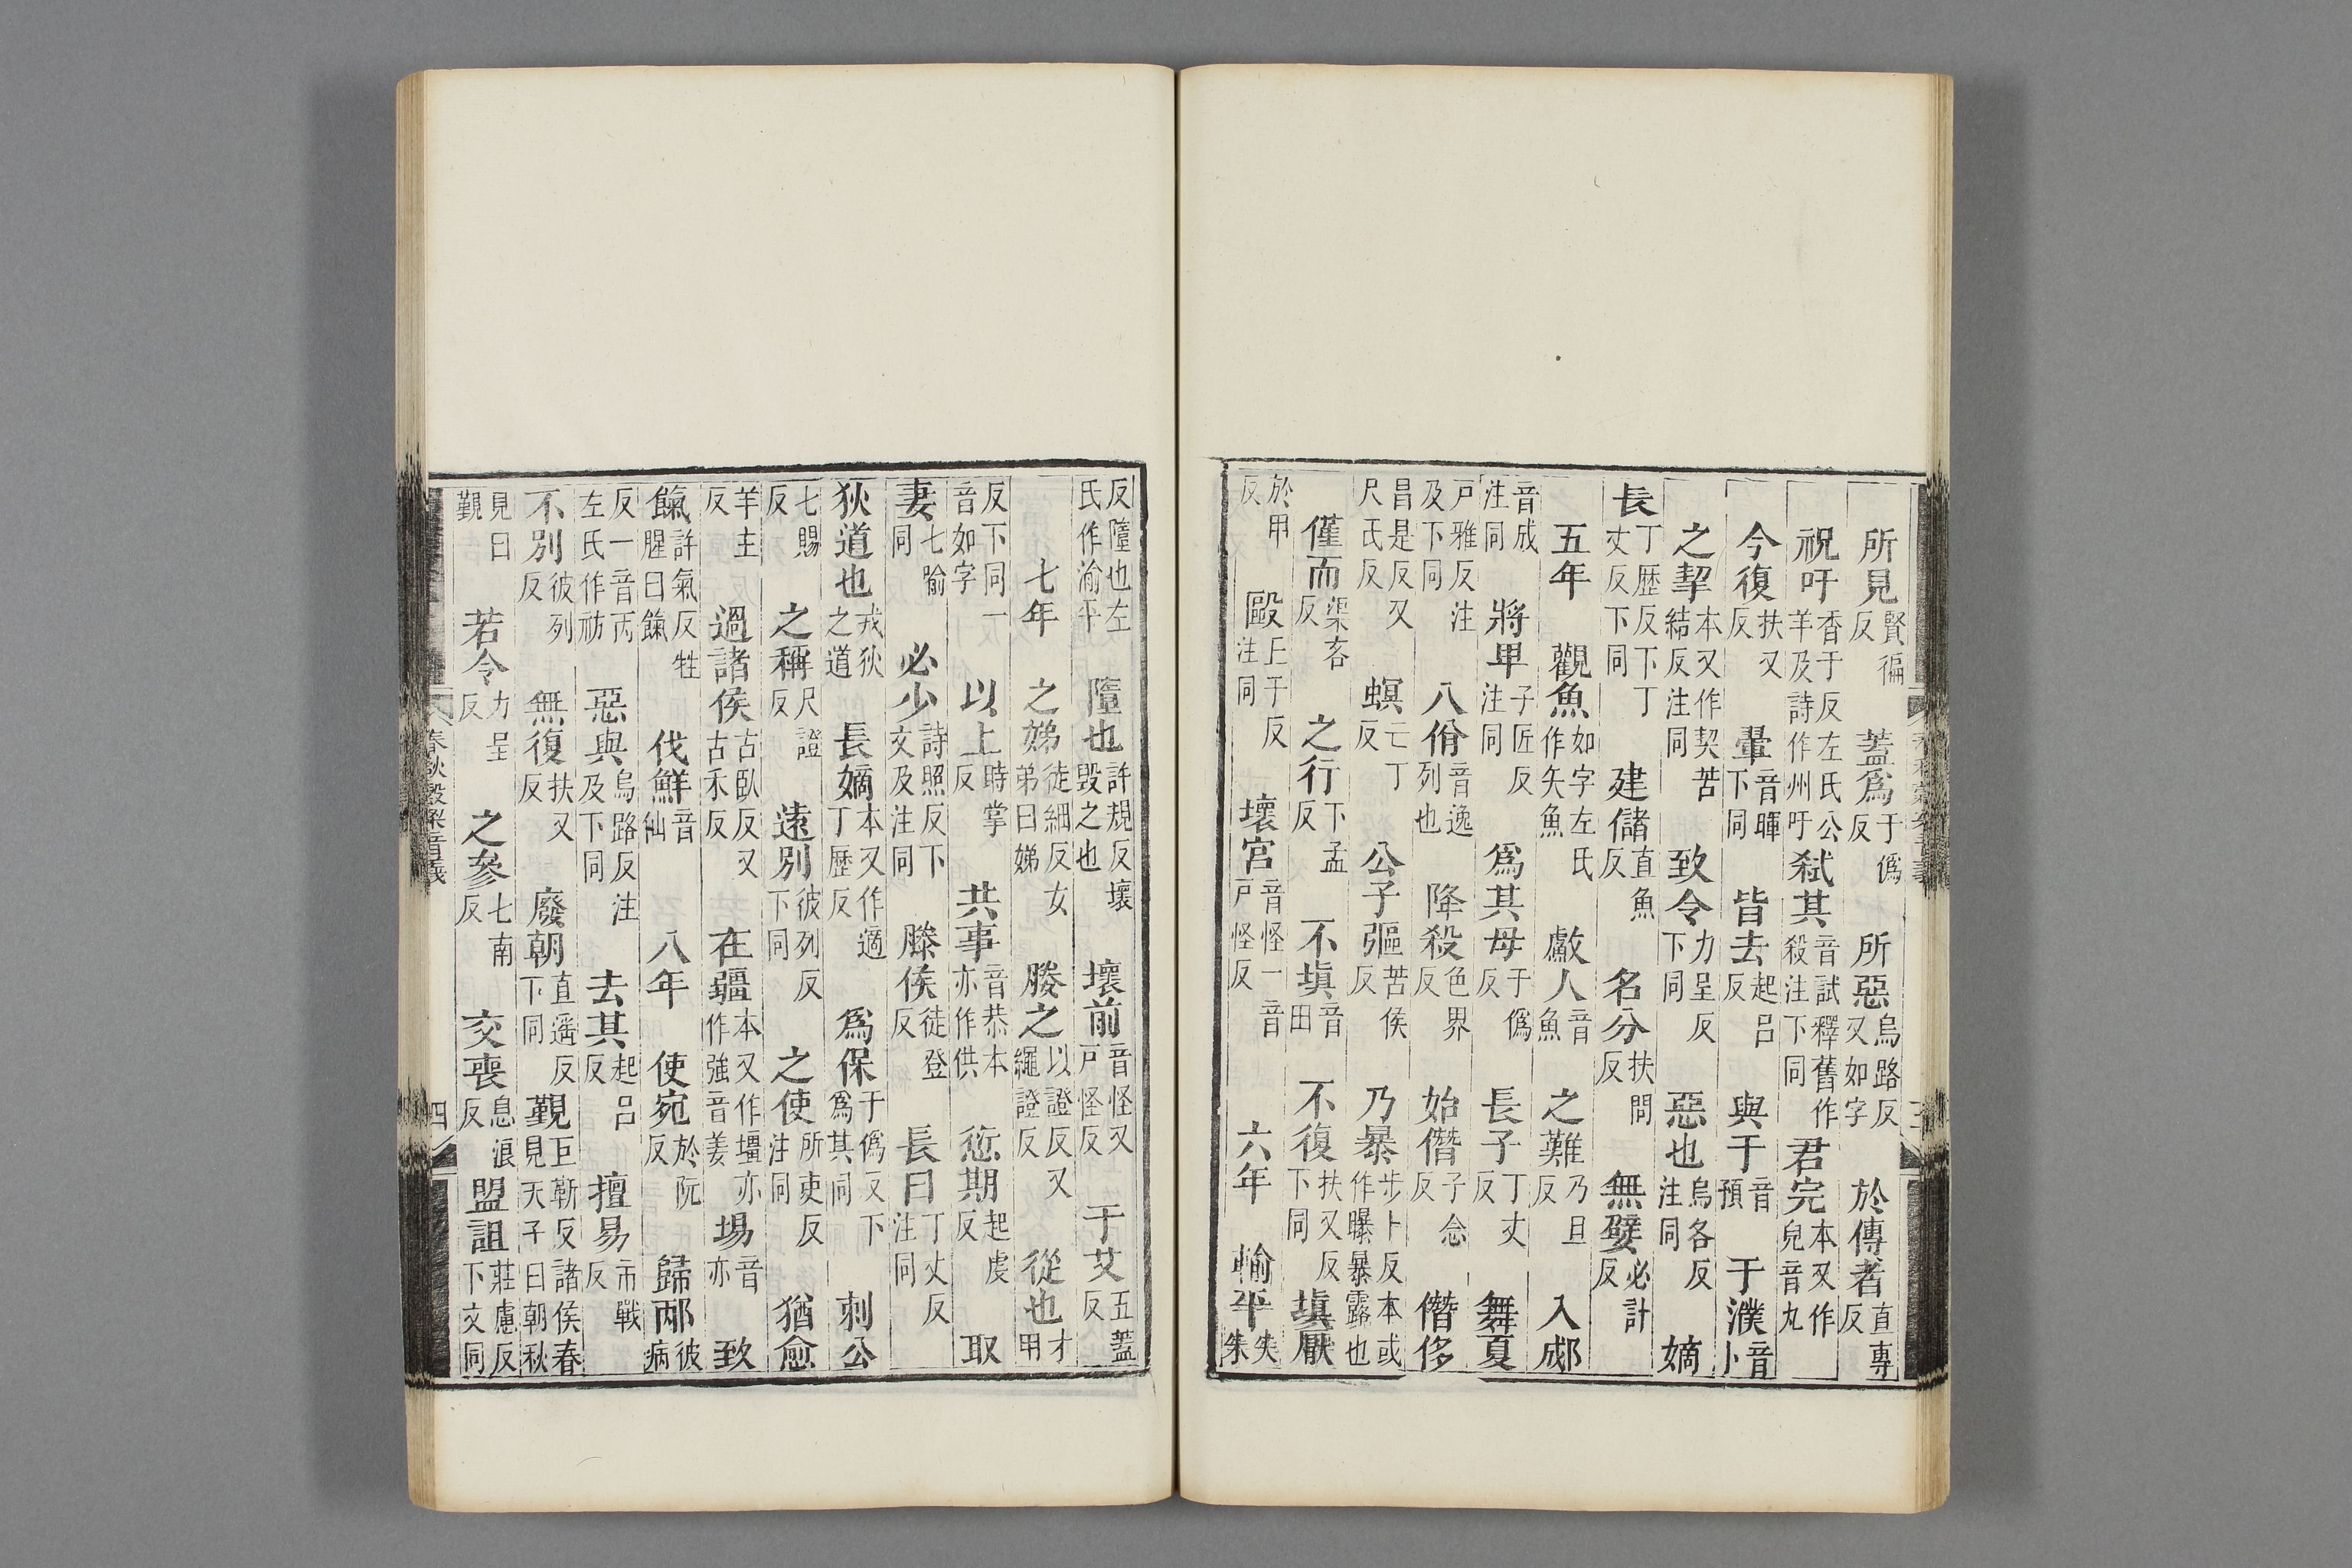 所見賢徧反 蓋爲于僞反 所惡烏路反又如字 於傳者直專反
祝吁香于反左氏公羊及詩作州吁 弑其音試釋舊作殺注下同 君完本又作皃音丸
今復扶又反 翬音暉下同 皆去起呂反 與于音預 于濮音卜
之挈本又作契苦結反注同 致令力呈反下同 惡也烏各反注同 嫡
丁歷反下丁丈反下同 長 建儲直魚反 名分扶問反 無嬖必計反
五年 觀魚如字左氏作矢魚 䱷人音魚 之難乃旦反 入郕
音成注同 將卑子匠反注同 爲其母于僞反 長子丁丈反 舞夏
戸雅反注及下同 八佾音逸列也 降殺色界反 始僭子念反 僭侈
昌是反又尺氏反 螟亡丁反 公子彄苦侯反 乃暴步卜反本或作曝暴露也
僅而渠吝反 之行下孟反 不填音田 不復扶又反下同 填厭
於甲反 毆上于反注同 壞宮音怪一音戸怪反 六年 輸平失朱
反墮也左氏作渝平 墮也許規反壞毀之也 壞前音怪又戸怪反 于艾五蓋反
七年 之娣徒細反女弟曰娣 媵之以證反又繩證反 從也才用
反下同一音如字 以上時掌反 共事音恭本亦作供 愆期起虔反 取
妻七喻同 必少詩照反下文及注同 滕侯徒登反 長曰丁丈反注同
狄道也戎狄之道 長嫡本又作適丁歷反 爲保于僞反下爲其同 刺公
七賜反 之稱尺證反 遠別彼列反下同 之使所吏反注同 猶愈
羊主反 過諸侯古臥反又古禾反 在疆本又作壃亦作強音姜 場音亦 致
餼許氣反牲腥曰餼 伐鮮音仙 八年 使宛於阮反 歸邴彼病
反一音丙左氏作祊 惡與烏路反注及下同 去其起呂反 擅易市戰反
不別彼列反 無復扶又反 廢朝直遥反下同 覲巨靳反諸侯春見天子曰朝秋
見曰覲 若令力呈反 之參七南反 交喪息浪反 盟詛莊慮反下文同
春秋穀梁音義 四